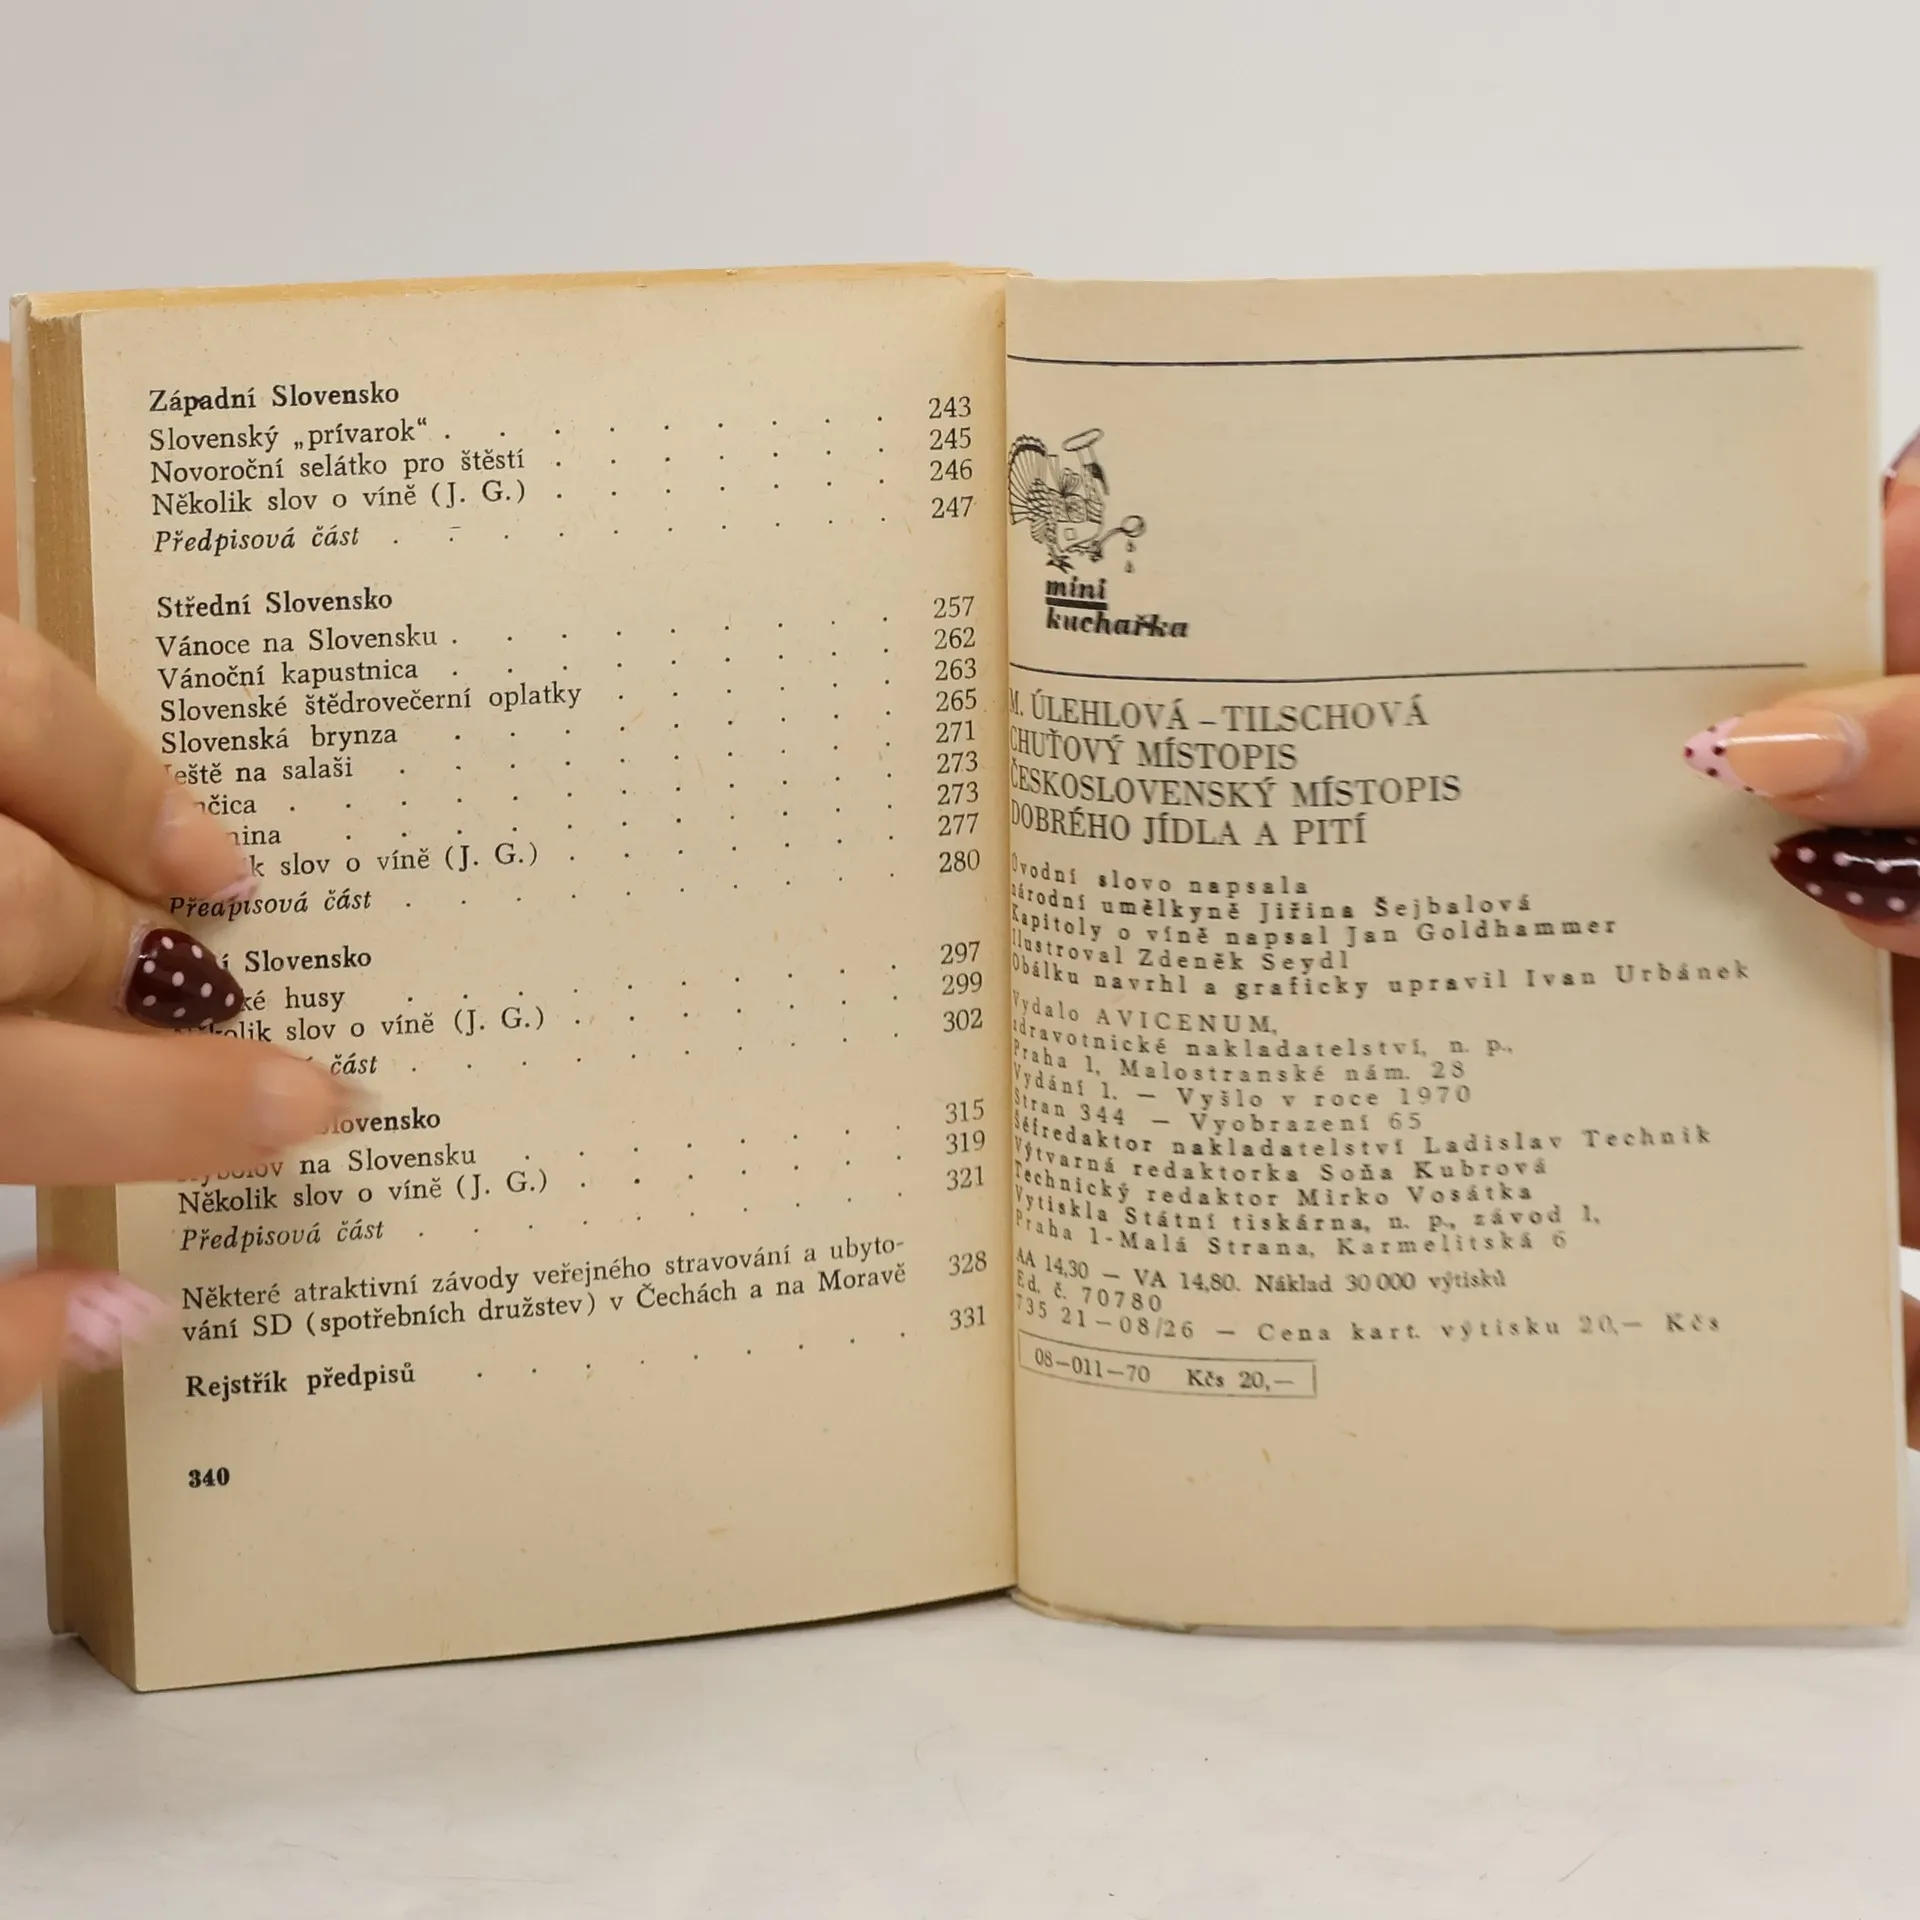 Západní Slovensko 243
Slovenský „prívarok“ . . . . . . . . . 245
Novoroční selátko pro štěstí . . . . . . . 246
Několik slov o víně (J. G.) . . . . . . . 247
Předpisová část . . . . . . . . . .
Střední Slovensko 257
Vánoce na Slovensku . . . . . . . . . 262
Vánoční kapustnica . . . . . . . . . 263
Slovenské štědrovečerní oplatky . . . . . . 265
Slovenská brynza . . . . . . . . . 271
na salaši . . . . . . . . . . 273
. . . . . . . . . . . . 273
. . . . . . . . . . . 277
slov o víně (J. G.) . . . . . . . 280
Předpisová část . . . . . . . . . .
Slovensko 297
husy . . . . . . . . . . 299
Několik slov o víně (J. G.) . . . . . . . 302
část . . . . . . . . . .
Slovensko 315
na Slovensku . . . . . . . . 319
Několik slov o víně (J. G.) . . . . . . . 321
Předpisová část . . . . . . . . . .
Některé atraktivní závody veřejného stravování a ubyto-
vání SD (spotřebních družstev) v Čechách a na Moravě 328
Rejstřík předpisů . . . . . . . . . 331
340
mini
kuchařka
M. ÚLEHLOVÁ – TILSCHOVÁ
CHUŤOVÝ MÍSTOPIS
ČESKOSLOVENSKÝ MÍSTOPIS
DOBRÉHO JÍDLA A PITÍ
Úvodní slovo napsala
národní umělkyně Jiřina Šejbalová
Kapitoly o víně napsal Jan Goldhammer
Ilustroval Zdeněk Seydl
Obálku navrhl a graficky upravil Ivan Urbánek
Vydalo AVICENUM,
zdravotnické nakladatelství, n. p.,
Praha 1, Malostranské nám. 28
Vydání 1. — Vyšlo v roce 1970
Stran 344 — Vyobrazení 65
Šéfredaktor nakladatelství Ladislav Technik
Výtvarná redaktorka Soňa Kubrová
Technický redaktor Mirko Vosátka
Vytiskla Státní tiskárna, n. p., závod 1,
Praha 1-Malá Strana, Karmelitská 6
AA 14,30 — VA 14,80. Náklad 30 000 výtisků
Ed. č. 70780
735 21—08/26 — Cena kart. výtisku 20,— Kčs
08—011—70 Kčs 20,—